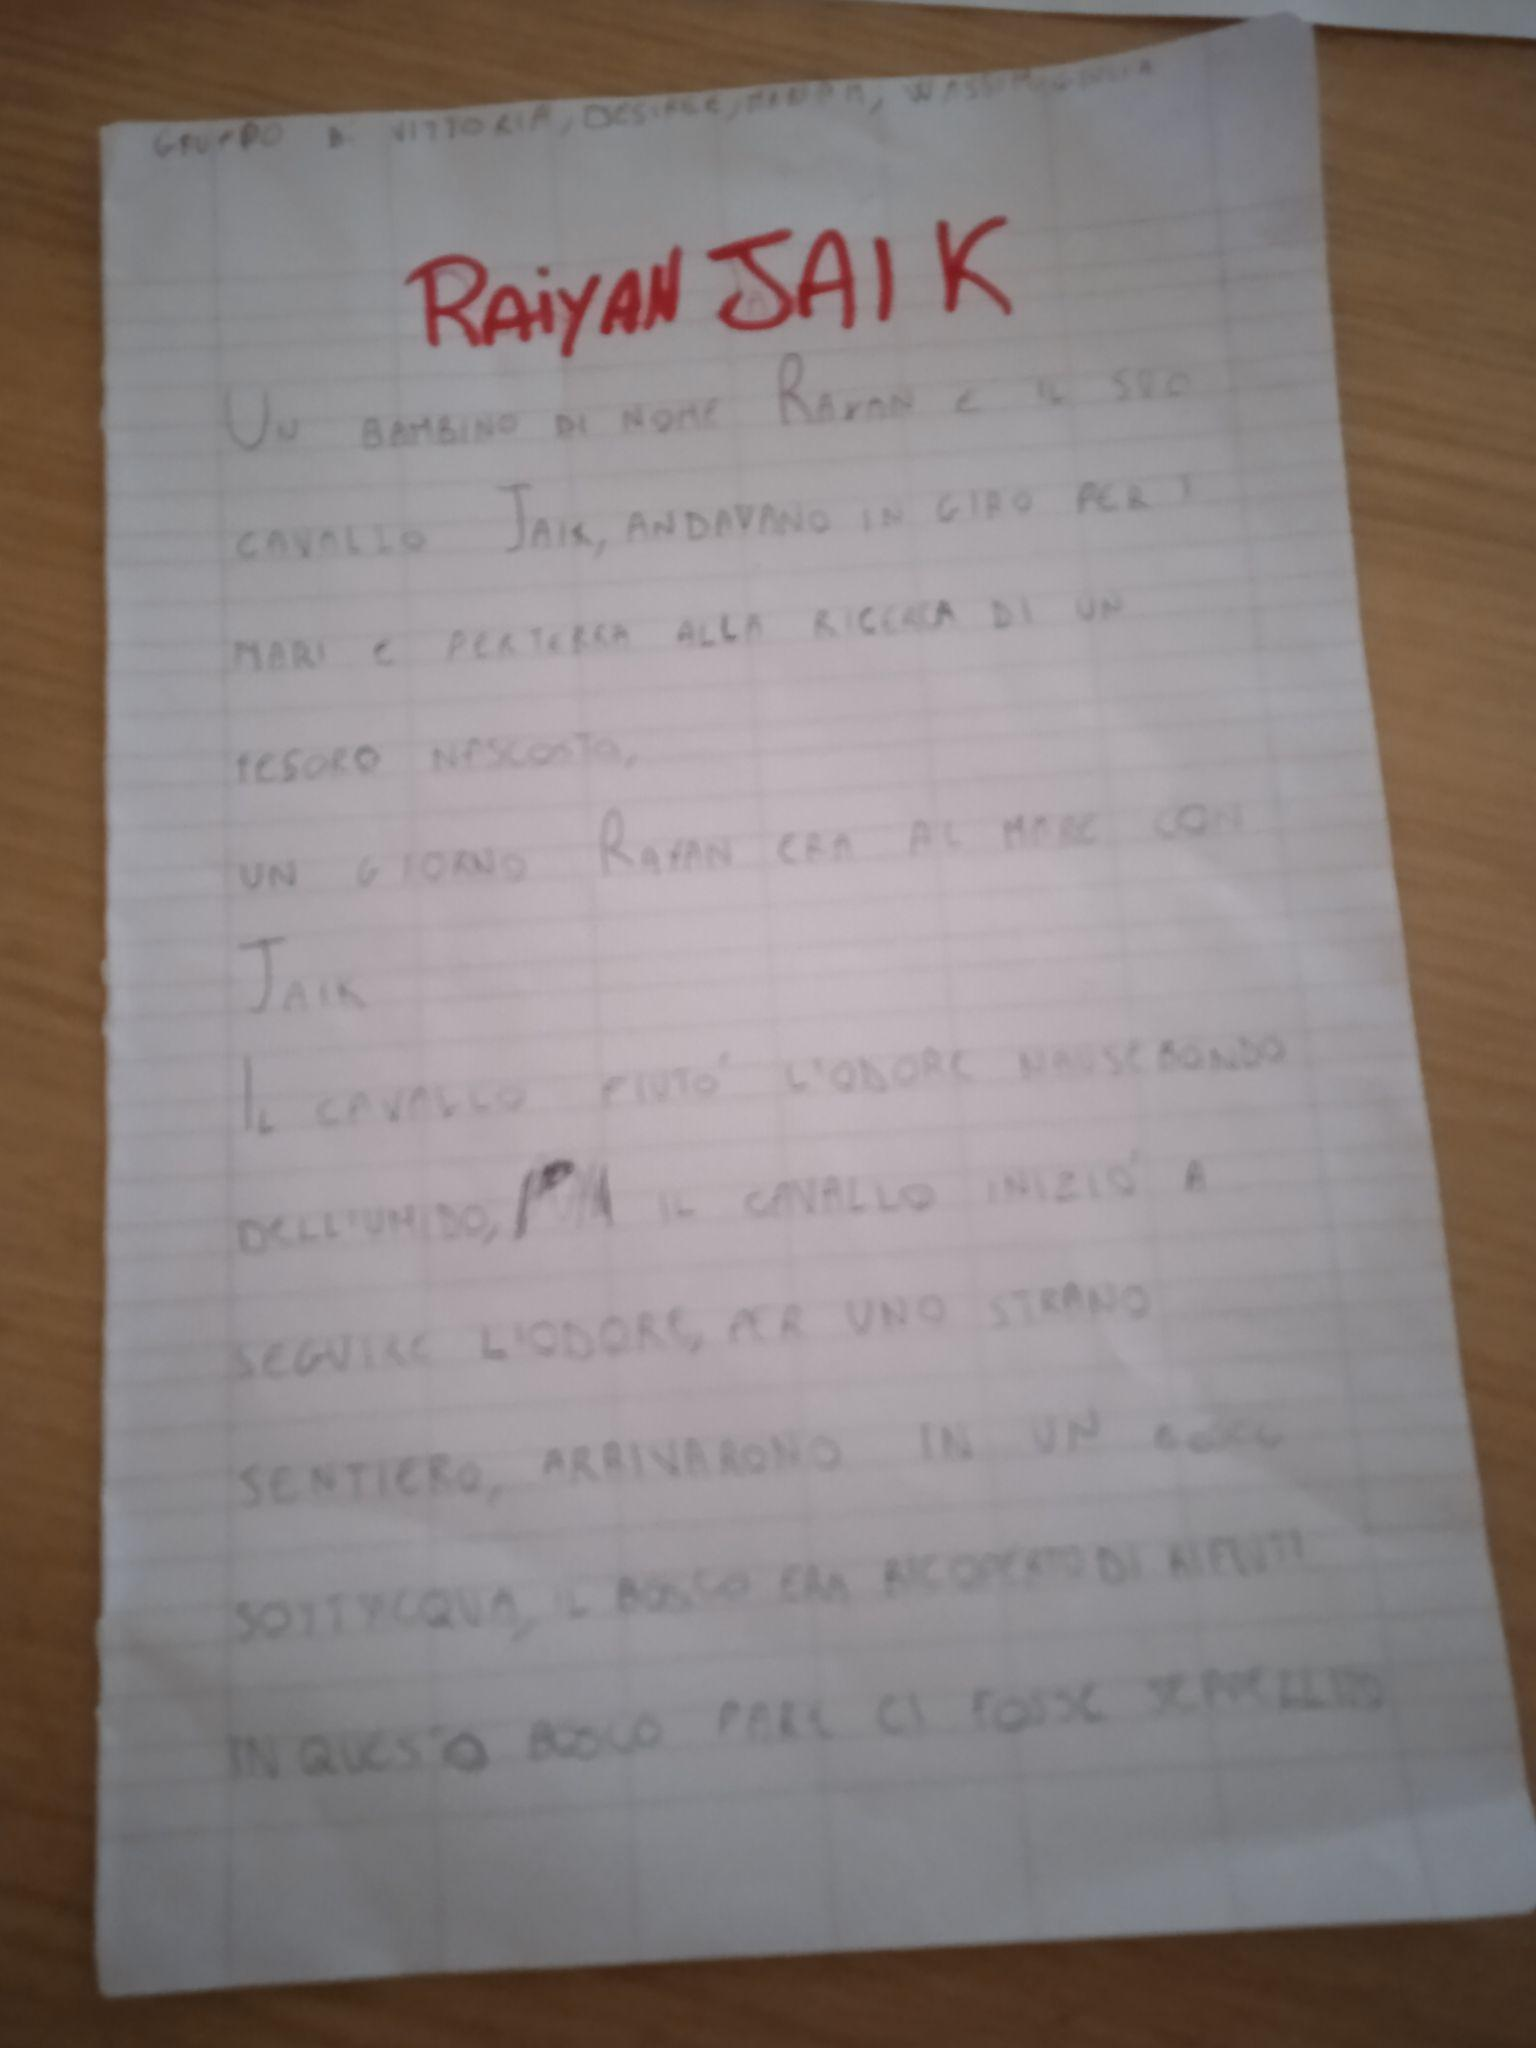 GRUPPO DI VITTORIA, DESIREE,
RAiYAN JAIK
UN BAMBINO DI NOME RAYAN E IL SUO
CAVALLO JAIK, ANDAVANO IN GIRO PER I
MARI E PER TERRA ALLA RICERCA DI UN
TESORO NASCOSTO,
UN GIORNO RAYAN ERA AL MARE CON
JAIK
IL CAVALLO FIUTO' L'ODORE NAUSEBONDO
DELL'UMIDO, IL CAVALLO INIZIO' A
SEGUIRE L'ODORE, PER UNO STRANO
SENTIERO, ARRIVARONO IN UN
SOTT'ACQUA, IL BOSCO ERA RICOPERTO DI RIFIUTI
IN QUESTO BOSCO PARE CI FOSSE SEPPELLITO